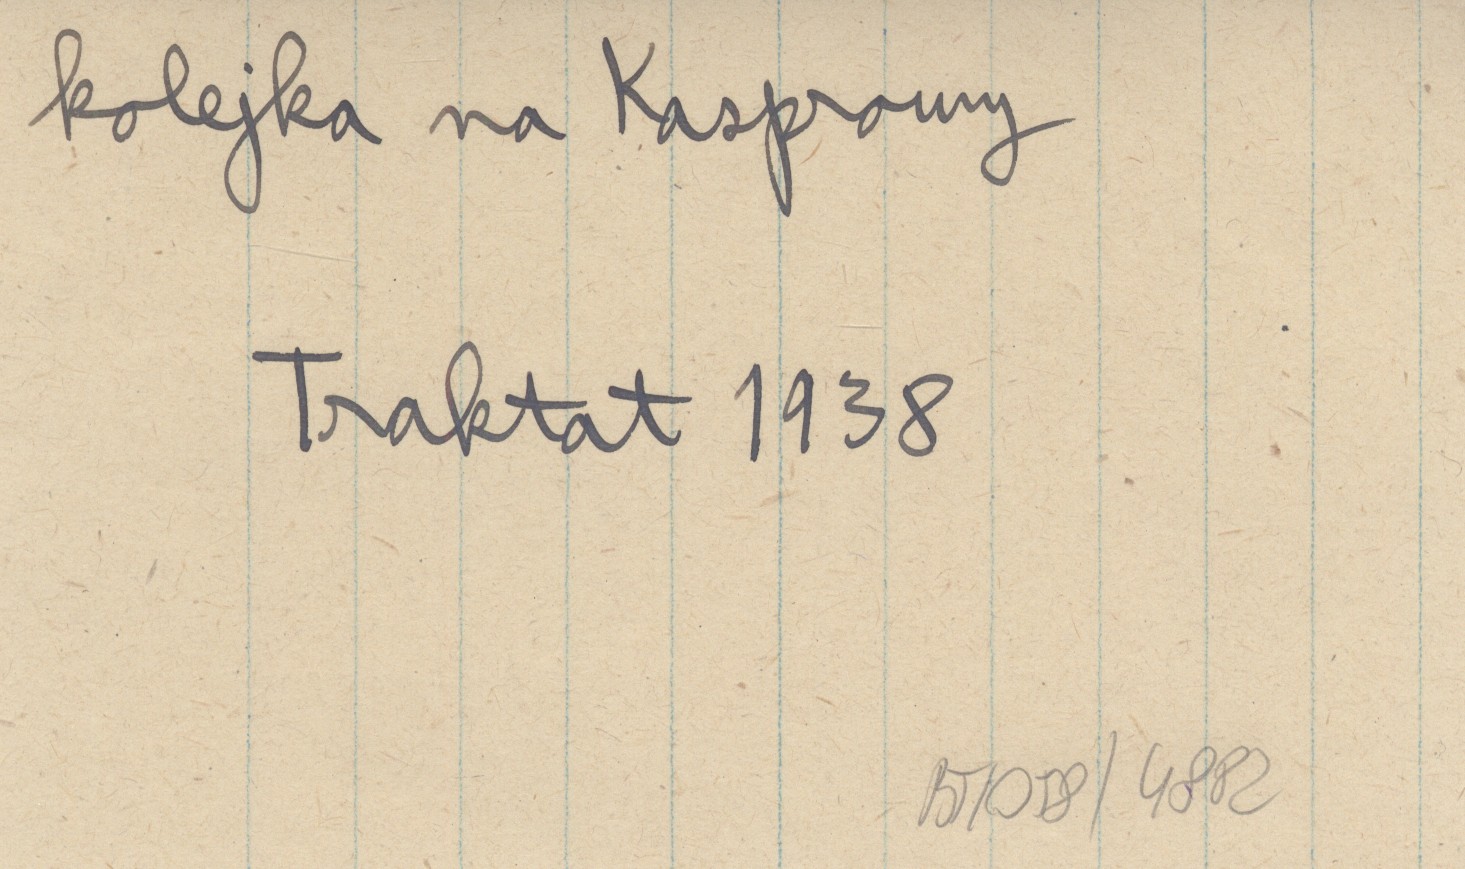 kolejka na Kasprowy
Traktat 1938
4882